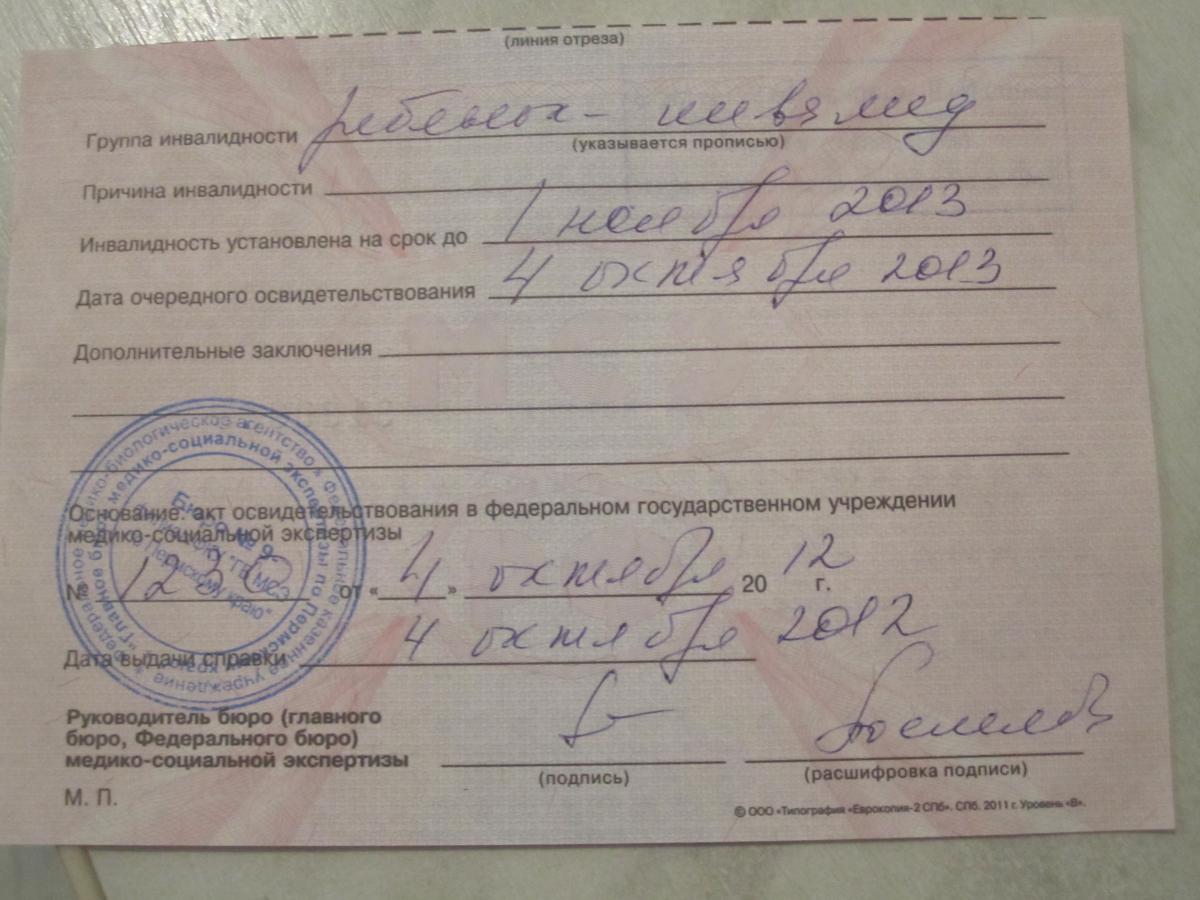 (линия отреза)
Группа инвалидности ребенок - инвалид
(указывается прописью)
Причина инвалидности
Инвалидность установлена на срок до 1 ноября 2013
Дата очередного освидетельствования 4 октября 2013
Дополнительные заключения
Основание: акт освидетельствования в федеральном государственном учреждении
медико-социальной экспертизы
№ от «4» октября 2012 г.
Дата выдачи справки 4 октября 2012
Руководитель бюро (главного
бюро, Федерального бюро)
медико-социальной экспертизы
(подпись)
(расшифровка подписи)
М. П.
© ООО «Типография «Еврокопия-2 СПб». СПб. 2011 г. Уровень «В».
Бюро № 9
"ГБ МСЭ
по Пермскому краю"
"Главное бюро медико-социальной экспертизы по Пермскому краю"